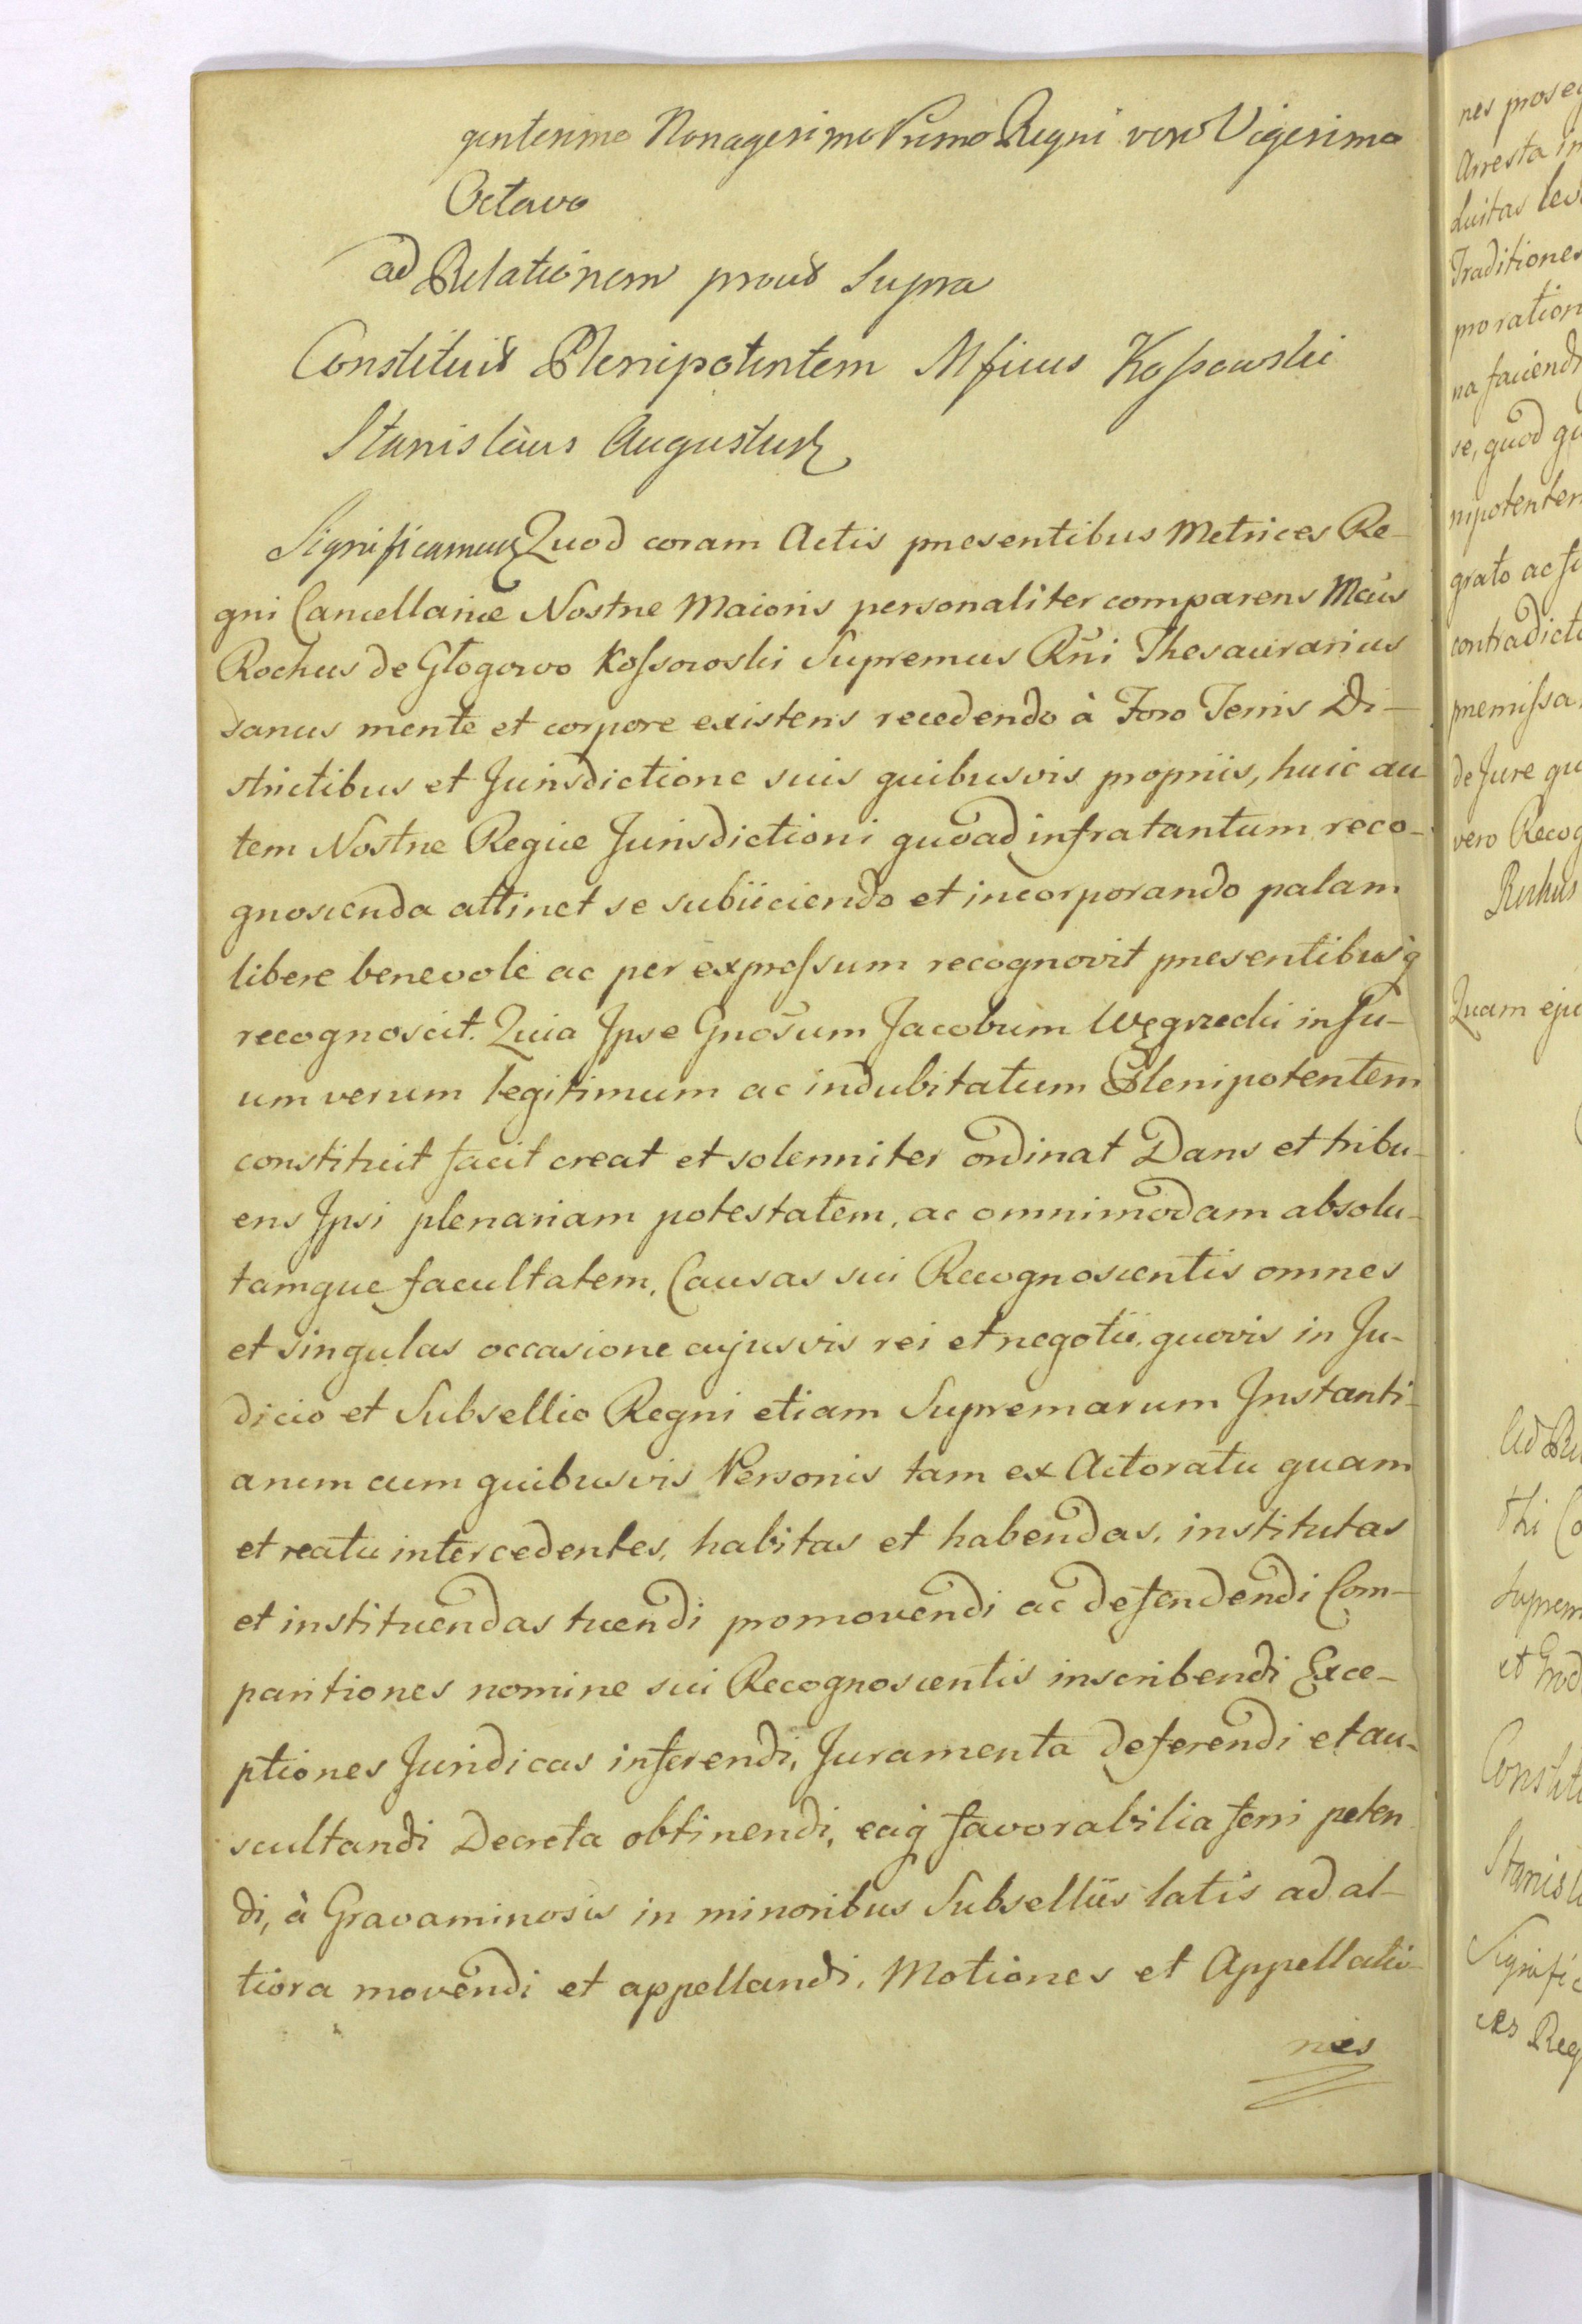 gentesimo Nonagesimo Primo Regni vero Vigesimo
Octavo
ad Relationem prout Supra
Constituit Plenipotentem Mficus Kossowski
Stanislaus Augustus
Significamus Quod coram Actis presentibus Metrices Re-
gni Cancellariæ Nostræ Maioris personaliter comparens Mcus
Rochus de Głogowo Kossowski Supremus Rni Thesaurarius
sanus mente et corpore existens recedendo à Foro Terris Di-
strictibus et Jurisdictione suis quibusvis propriis, huic au
tem Nostræ Regiæ Jurisdictioni quoad infratantum reco-
gnoscenda attinet se subiiciendo et incorporando palam
libere benevole ac per expressum recognovit presentibusq
recognoscit. Quia Ipse Gnosum Jacobum Węgrzecki in Su-
um verum legitimum ac indubitatum Plenipotentem
constituit facit creat et solenniter ordinat Dans et tribu-
ens Ipsi plenariam potestatem, ac omnimodam absolu-
tamque facultatem, Causas sui Recognoscentis omnes
et singulas occasione cujusvis rei et negotii, quovis in Ju-
dicio et Subsellio Regni etiam Supremarum Instanti-
arum cum quibusvis Personis tam ex Actoratu quam
et reatu intercedentes, habitas et habendas, institutas
et instituendas tuendi promovendi ac defendendi Com-
paritiones nomine sui Recognoscentis inscribendi Exce-
ptiones Juridicas inferendi, Juramenta deferendi et au-
scultandi Decreta obtinendi, eaq favorabilia ferri peten
di, à Gravaminosis in minoribus Subselliis latis ad al-
tiora movendi et appellandi, Motiones et Appellatio-
nes
nes
Arresta in
Traditiones
poration
na faciend
se, quod qu
nipotentem
grato ac
contradict
premissa
de Jure qu
vero Recog
Quam eju
Ad Re
thi Co
Suprem
Constit
Stanisl
Signific
ces Reg